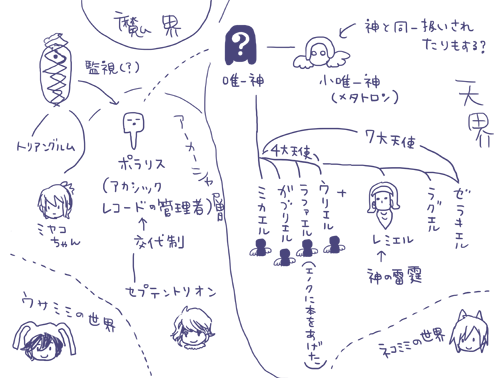 魔界
監視(?)
トリアングルム
ミヤコ
ちゃん
ポラリス
(アカシック
レコードの管理者)
↑
交代制
セプテントリオン
アーカーシャ層
ウサミミの世界
?
唯一神
小唯一神
(メタトロン)
神と同一扱いされ
たりもする?
天界
7大天使
4大天使
ミカエル
ガブリエル
ラファエル
ウリエル
+
(エノクに本をあげた)
レミエル
↑
神の雷霆
ラグエル
ゼラキエル
ネコミミの世界